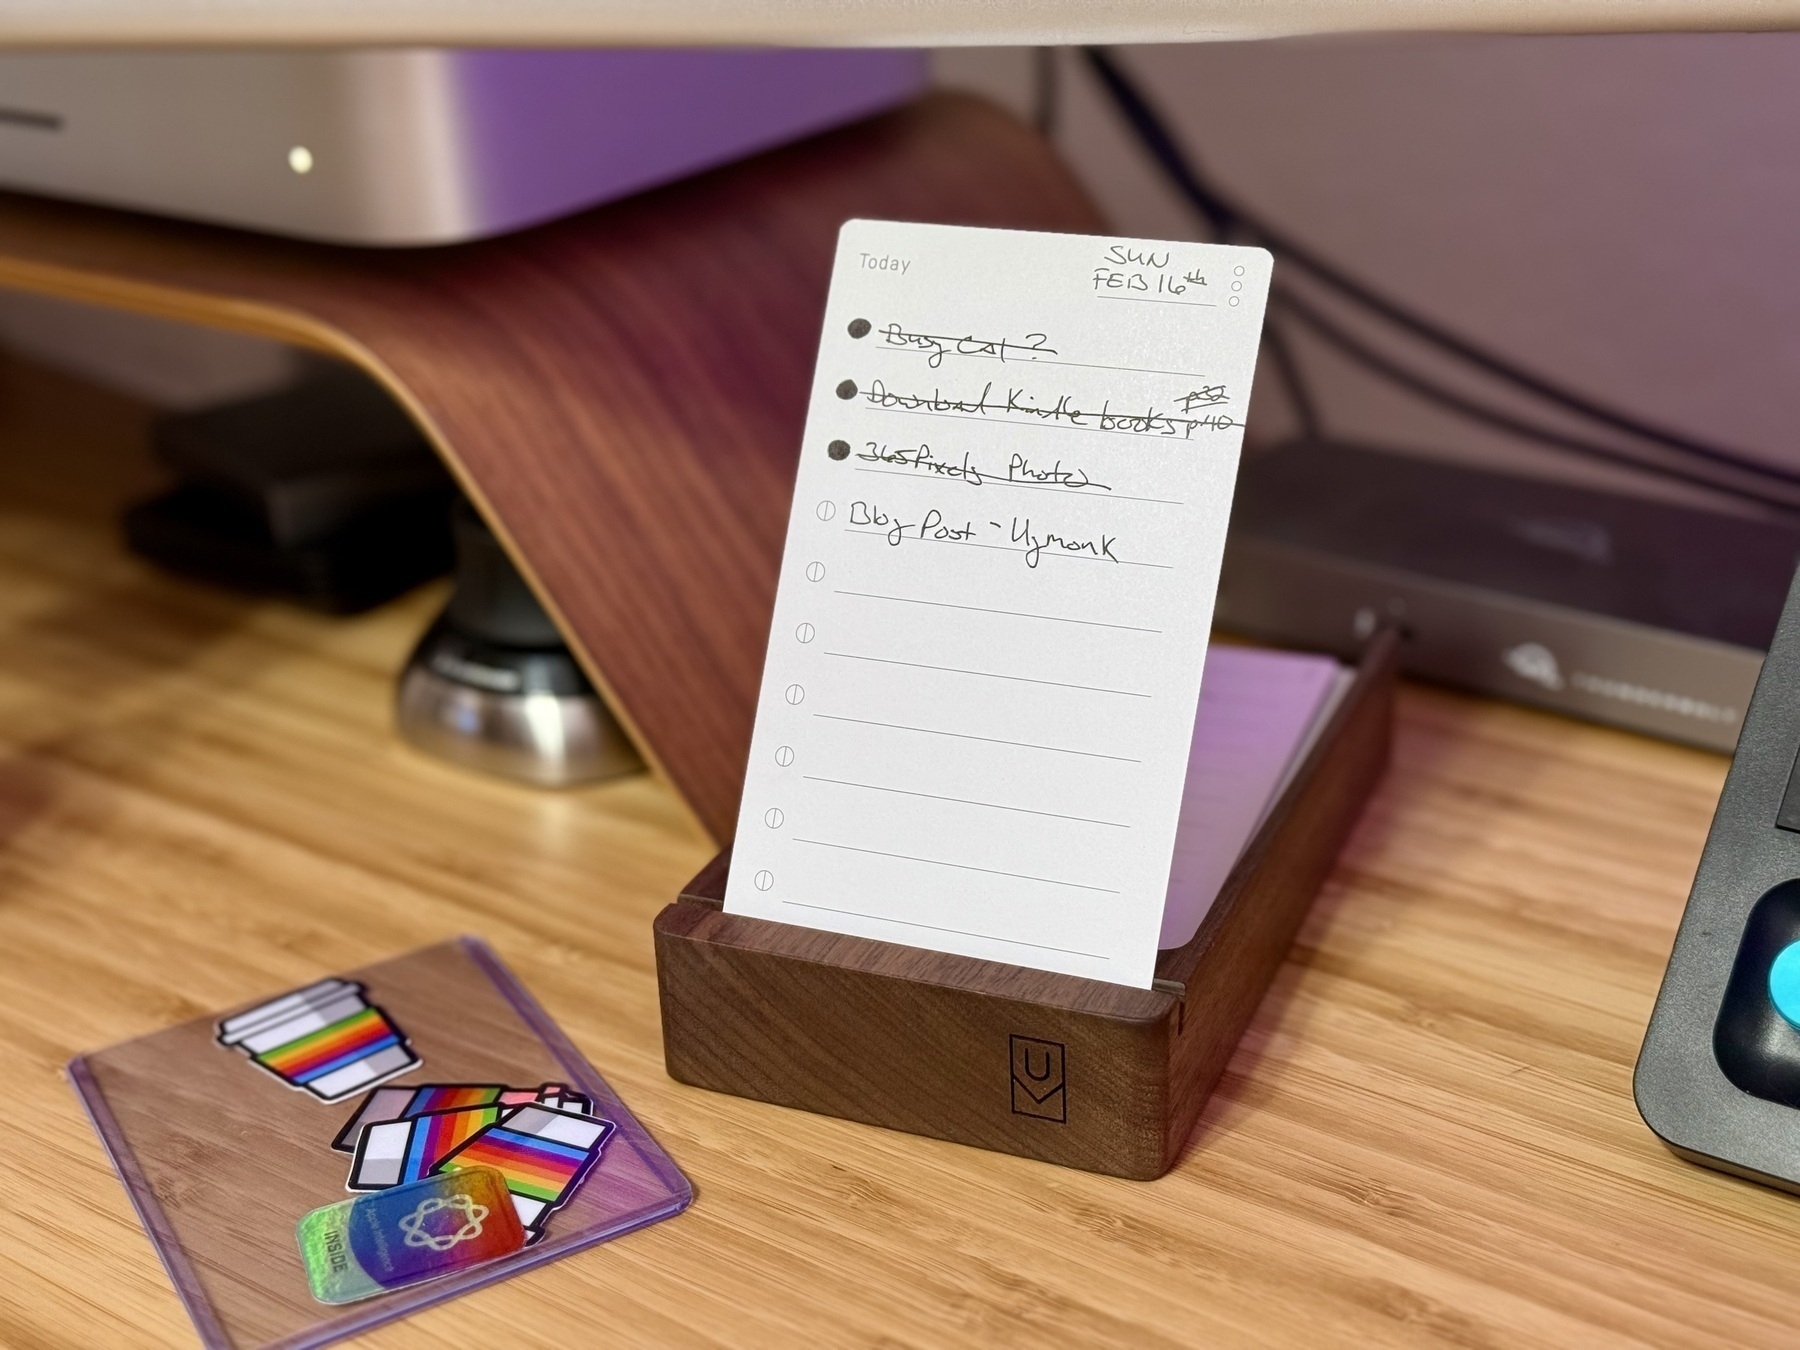 Today
SUN
FEB 16th
Busy Cal ?
Download Kindle books p32 p40
365 Pixels Photo
Blog Post - Ugmonk
U
Apple Intelligence
INSIDE